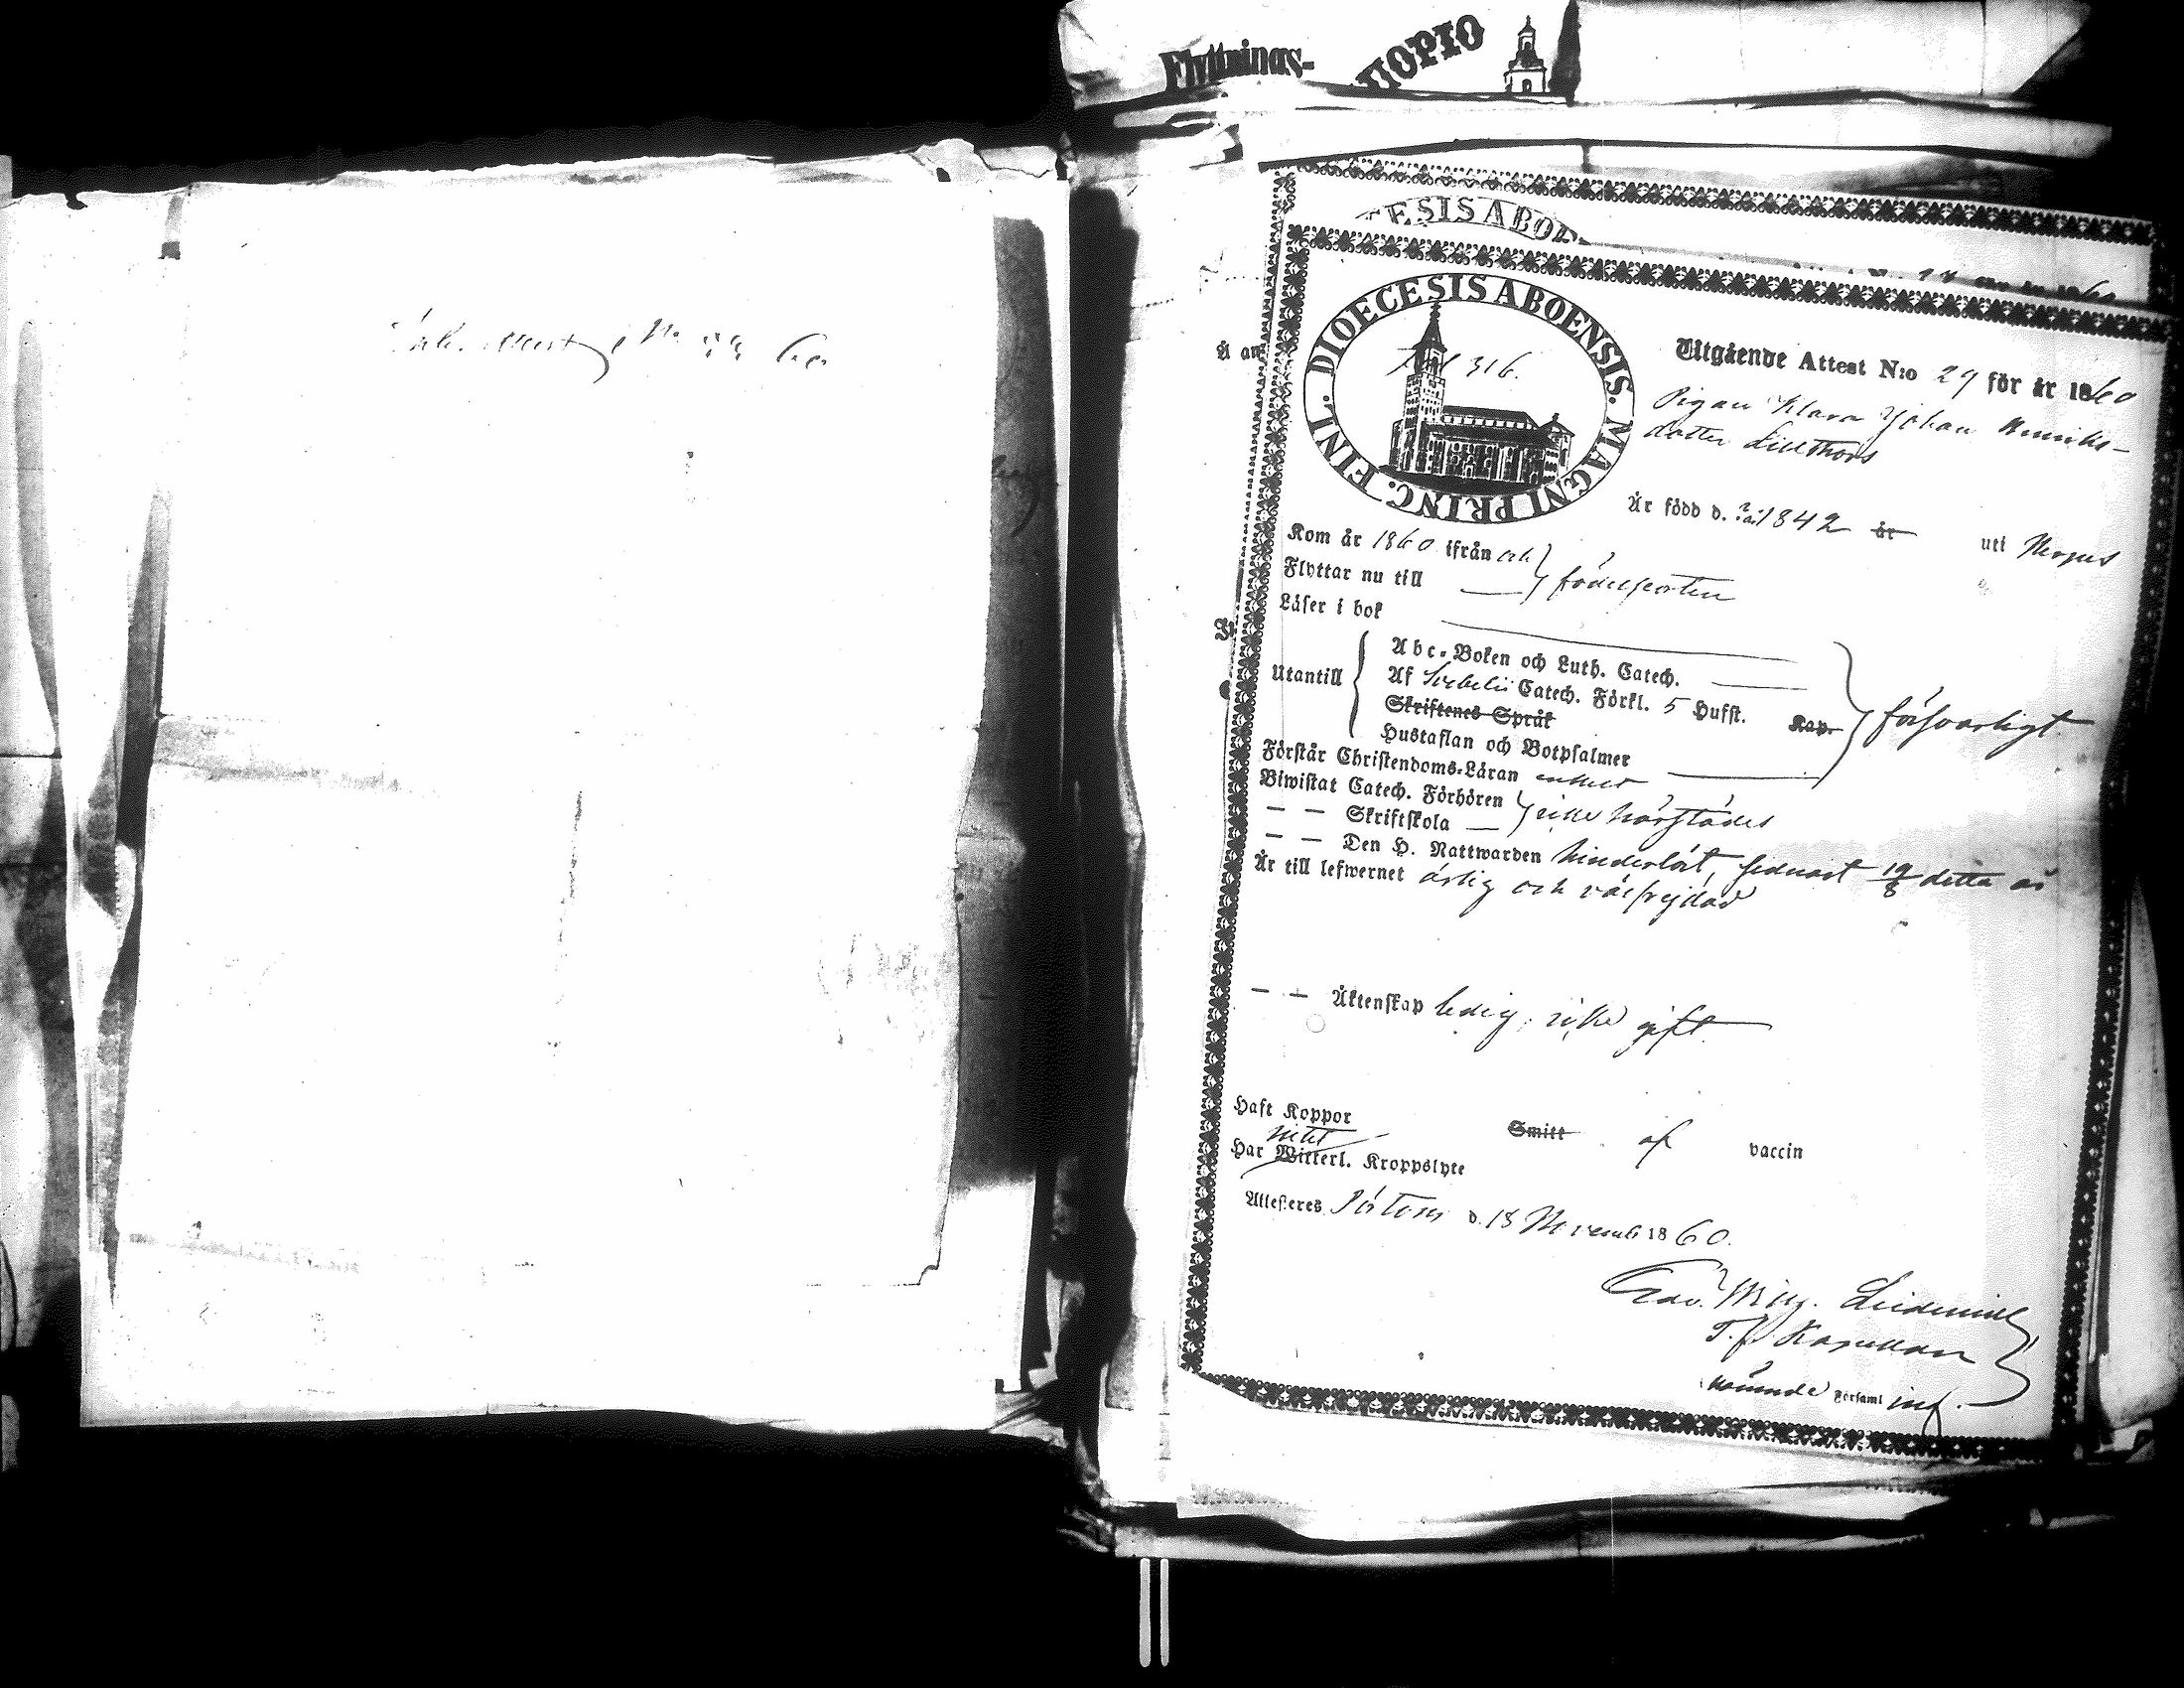 Flyttnings-
UOPIO
ESIS ABOE
DIOECESIS ABOENSIS. MAGNI PRINC. FINL.
316.
Utgående Attest N:o 29 för år 1860
Pigan Klara Johan Henriks-
dotter Lillthors
Är född d. 1842 år uti Nerpes
Kom år 1860 ifrån och
Flyttar nu till födelseorten
Läser i bok
Utantill
Abc-Boken och Luth. Catech.
Af Svebelii Catech. Förkl. 5 Hufst. Kap.
Skriftenes Språk
försvarligt
Hustaflan och Botpsalmer
Förstår Christendoms-Läran enkelt
Biwistat Catech. Förhören
— — Skriftskola — icke härstädes
— — Den H. Nattwarden hinderlöst, senast 19/8 detta år
Är till lefwernet ärlig och välfrejdad
— — Äktenskap ledig, icke gift
Haft Koppor Smitt af vaccin
intet
Har Witterl. Kroppslyte
Attesteres Pörtom d. 18 November 1860.
T.f. Kapellan
Församl